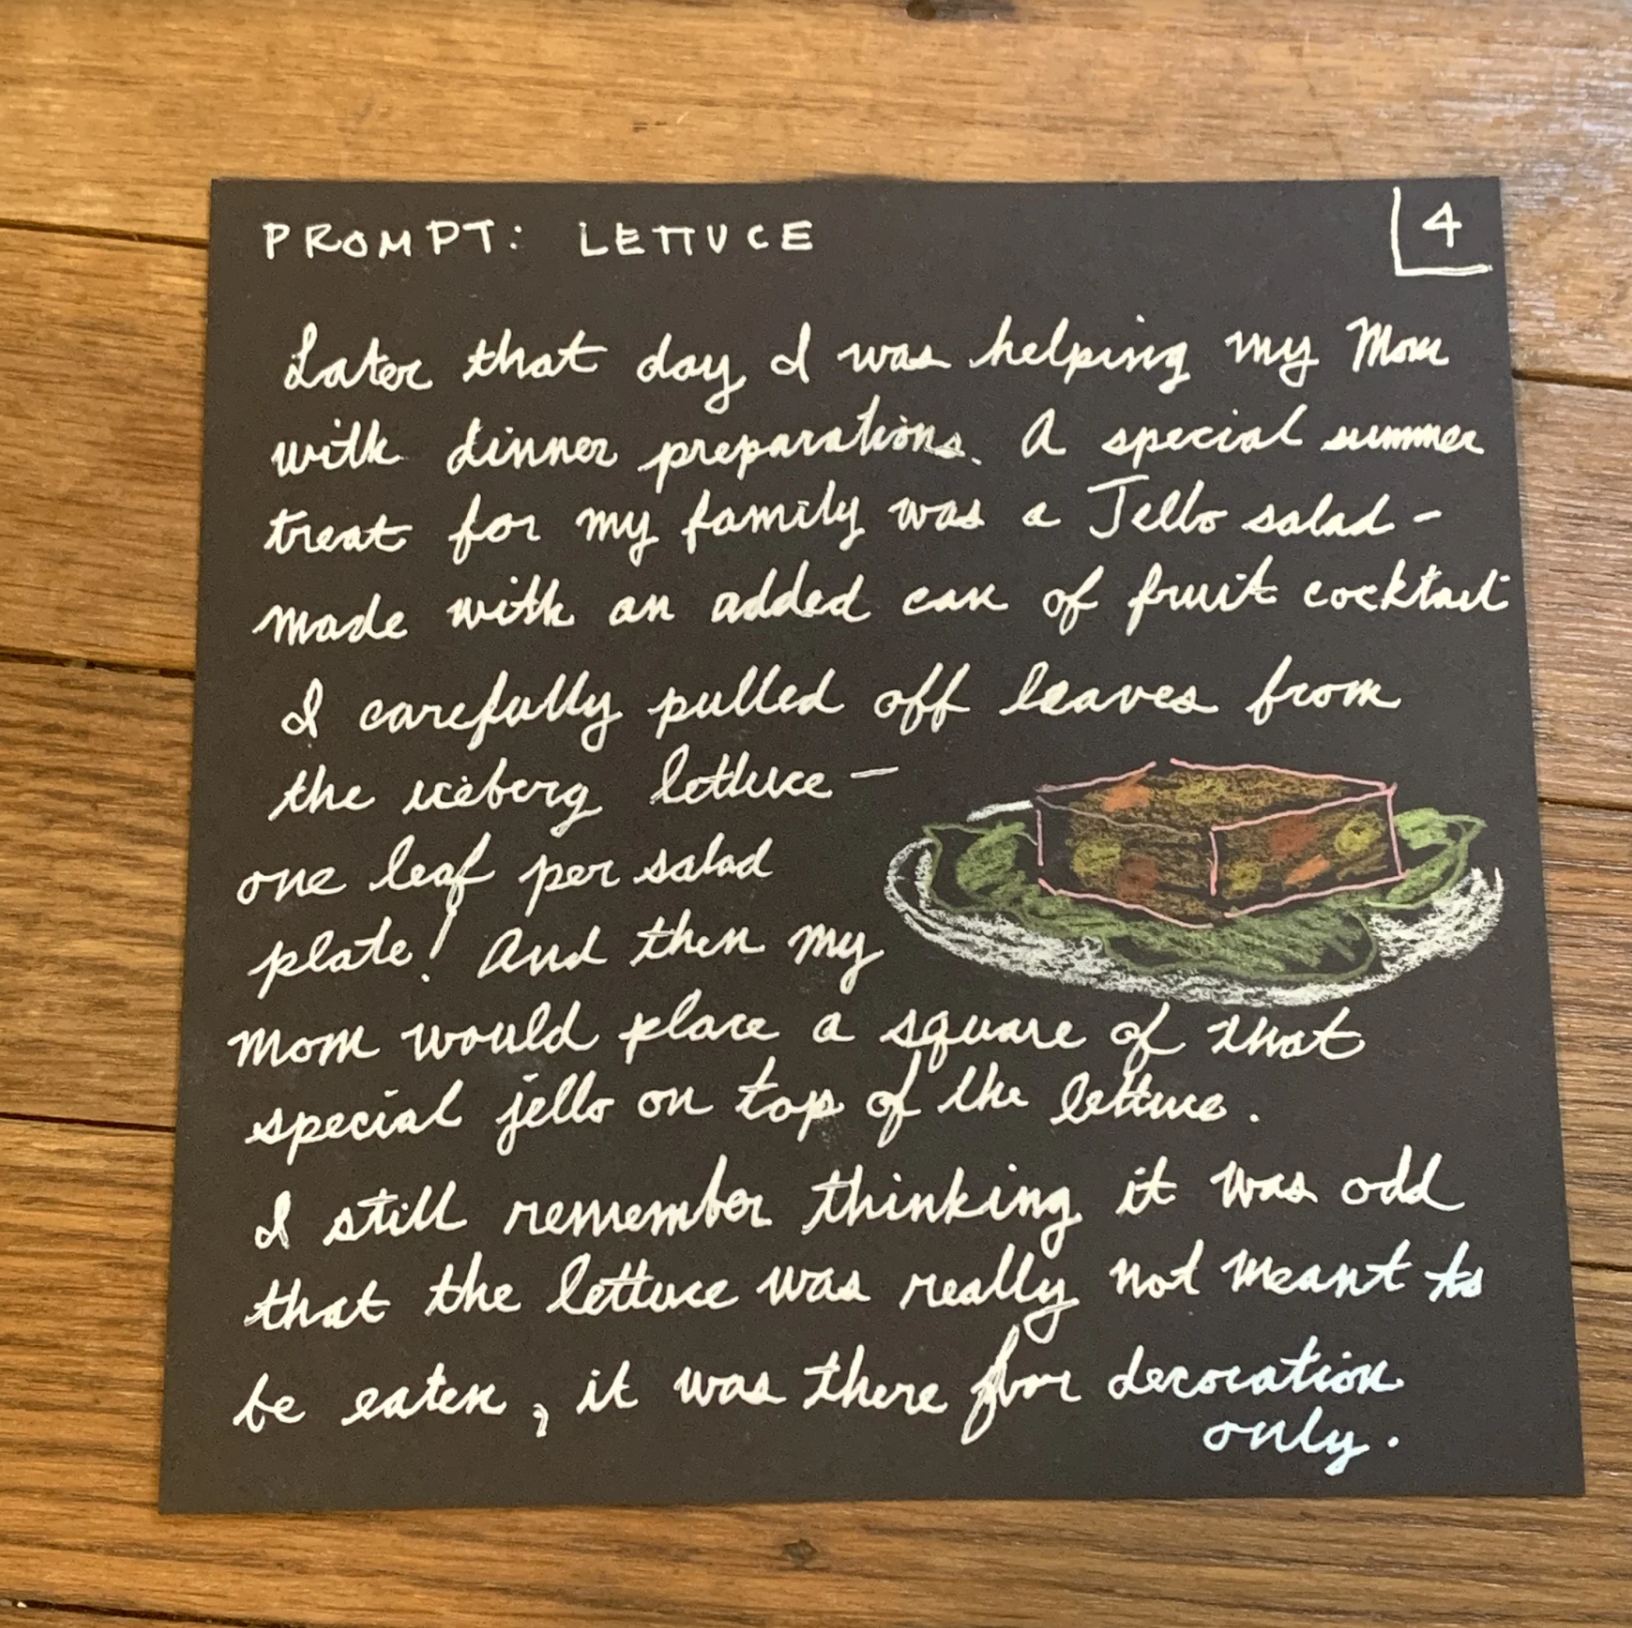 PROMPT: LETTUCE
4
Later that day I was helping my Mom
with dinner preparations. A special summer
treat for my family was a Jello salad -
made with an added can of fruit cocktail
I carefully pulled off leaves from
the iceberg lettuce -
one leaf per salad
plate! And then my
Mom would place a square of that
special jello on top of the lettuce.
I still remember thinking it was odd
that the lettuce was really not meant to
be eaten, it was there for decoration
only.